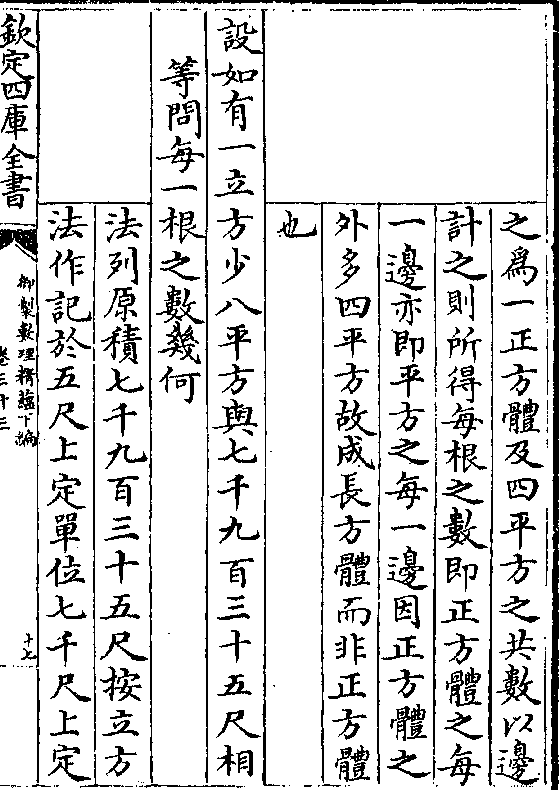 之爲一正方體及四平方之共數以邊
計之則所得每根之數即正方體之每
一邊亦即平方之每一邊因正方體之
外多四平方故成長方體而非正方體
也
設如有一立方少八平方與七千九百三十五尺相
等問每一根之數幾何
法列原積七千九百三十五尺按立方
法作記於五尺上定單位七千尺上定
欽定四庫全書
御製數理精蘊下編
卷三十三
十七